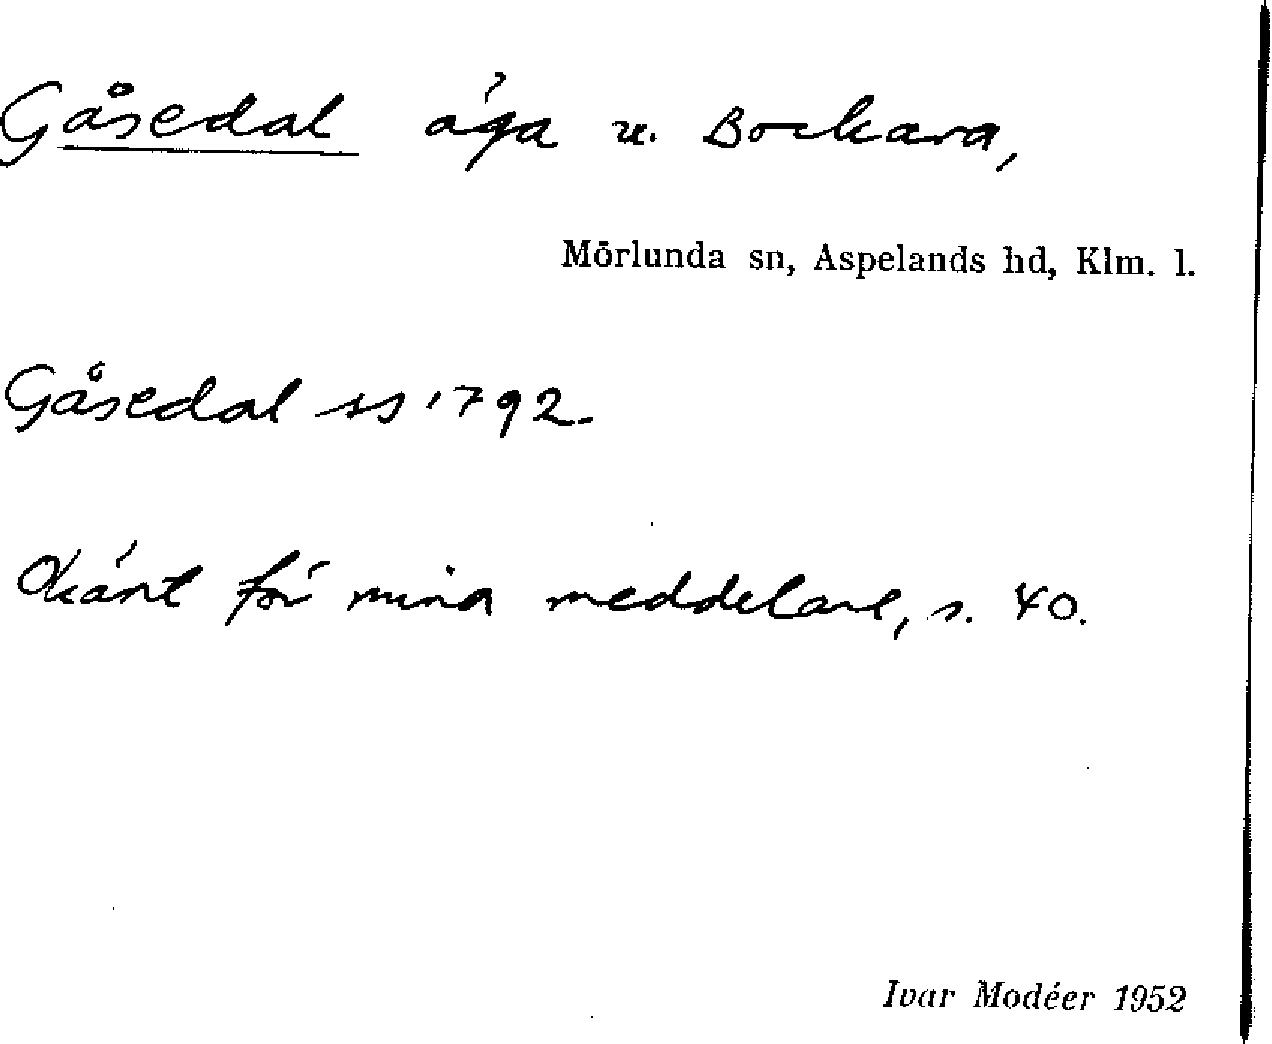 Gåsedal äga u. Bockara,
Mörlunda sn, Aspelands hd, Klm. l.
Gåsedal ss 1792.
Okänt för mina meddelare, s. 40.
Ivar Modéer 1952